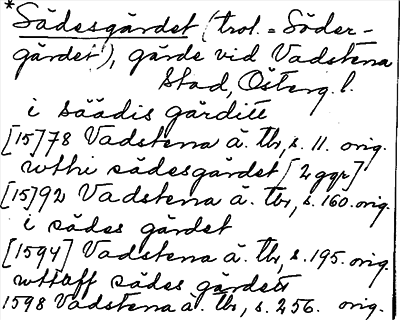 *Sädesgärdet (trol. = Söder-
gärdet), gärde vid Vadstena
stad, Österg. l.
i säädis gärditt
[15]78 Vadstena ä. Tb, s. 11. orig.
wthi sädesgärdet [2 ggr]
[15]92 Vadstena ä. Tb, s. 160. orig.
i sädes gärdet
[1594] Vadstena ä. Tb, s. 195. orig.
wttaff sädes gärdett
1598 Vadstena ä. Tb, s. 256. orig.